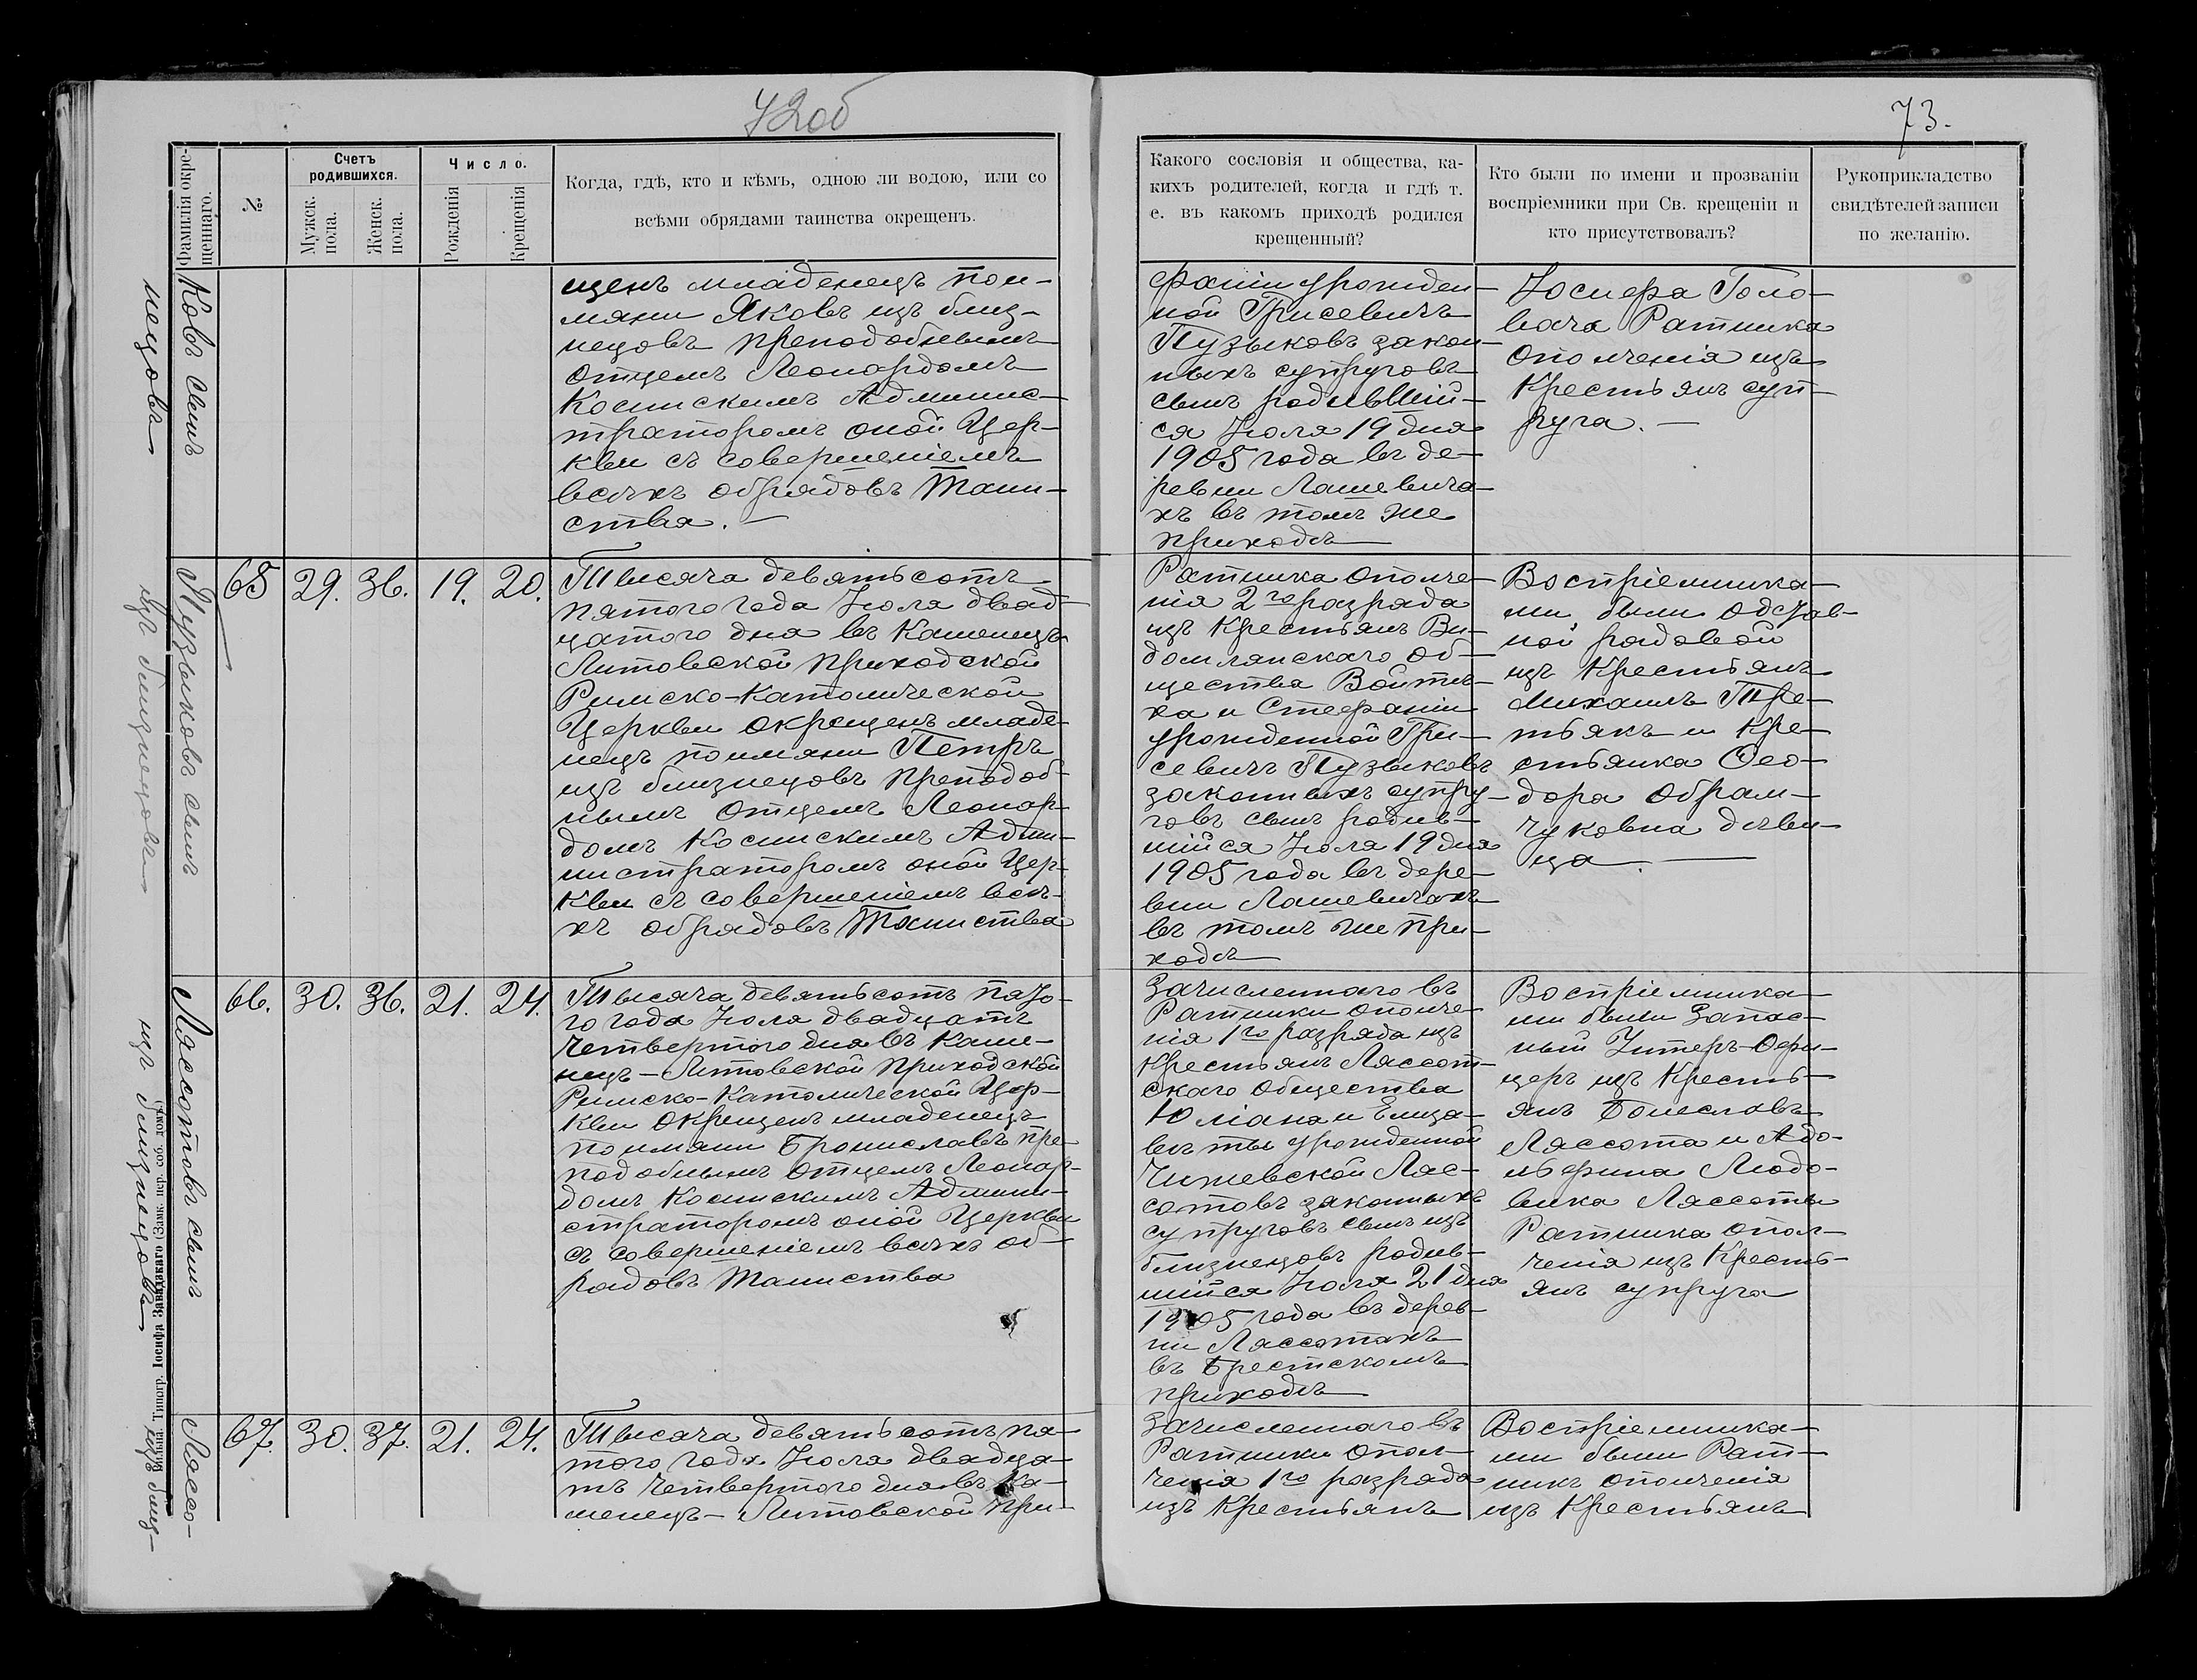 72об
73.
Фамилія окре-
щеннаго.
№
Счетъ
родившихся.
Мужск.
пола.
Женск.
пола.
Число.
Рожденія
Крещенія
Когда, гдѣ, кто и кѣмъ, одною ли водою, или со
всѣми обрядами таинства окрещенъ.
Какого сословія и общества, ка-
кихъ родителей, когда и гдѣ т.
е. въ какомъ приходѣ родился
крещенный?
Кто были по имени и прозваніи
воспріемники при Св. крещеніи и
кто присутствовалъ?
Рукоприкладство
свидѣтелей записи
по желанію.
ковъ сынъ
нецовъ
щенъ младенецъ пои-
мяни Яковъ изъ близ-
нецовъ преподобнымъ
отцемъ Леонардомъ
Косинскимъ Админис-
траторомъ оной Цер-
кви съ совершеніемъ
всѣхъ обрядовъ Таин-
ства. —
фаніи урожден-
ной Грисевичъ
Пузыковъ закон-
ныхъ супруговъ
сынъ родившій-
ся Іюля 19 дня
1905 года въ де-
ревни Лашевича-
хъ въ томъ же
приходѣ
Іосифа Голо-
вача Ратника
ополченія изъ
крестьянъ суп-
руга. —
Пузыковъ сынъ
изъ близнецовъ
65 29. 36. 19. 20.
Тысяча девятьсотъ
пятого года Іюля двад-
цатого дня въ Каменецъ
Литовской приходской
Римско-Католической
Церкви окрещенъ младе-
нецъ поимяни Петръ
изъ близнецовъ преподоб-
нымъ отцемъ Леонар-
домъ Косинскимъ Адми-
нистраторомъ оной Цер-
кви съ совершеніемъ всѣ-
хъ обрядовъ Таинства
Ратника ополче-
нія 2го разряда
изъ крестьянъ Ви-
домлянскаго об-
щества Войтѣ-
ха и Стефаніи
урожденной Гри-
севичъ Пузыковъ
законныхъ супру-
говъ сынъ родив-
шійся Іюля 19 дня
1905 года въ дере-
вни Лашевичахъ
въ томъ же при-
ходѣ
Воспріемника-
ми были одстав-
ной рядовой
изъ крестьянъ
Михаилъ Тре-
тьякъ и кре-
стьянка Ѳео-
дора Обрам-
чуковна дѣви-
ца. —
Лассотовъ сынъ
изъ близнецовъ
66. 30. 36. 21. 24.
Тысяча девятьсотъ пято-
го года Іюля двадцать
четвертого дня въ Каме-
нецъ-Литовской приходской
Римско-Католической Цер-
кви окрещенъ младенецъ
поимяни Брониславъ пре-
подобнымъ отцемъ Леонар-
домъ Косинскимъ Админи-
страторомъ оной Церкви
съ совершеніемъ всѣхъ об-
рядовъ Таинства
Зачисленнаго въ
Ратники ополче-
нія 1го разряда изъ
крестьянъ Лассот-
скаго общества
Юліана и Елиза-
веты урожденной
Чижевской Лас-
сотовъ законныхъ
супруговъ сынъ изъ
близнецовъ родив-
шійся Іюля 21 дня
1905 года въ дерев-
ни Лассотахъ
въ Брестскомъ
приходѣ
Воспріемника-
ми были Запас-
ный Унтеръ-Офи-
церъ изъ кресть-
янъ Болеславъ
Лассота и Адо-
льфина Людо-
вика Лассоты
Ратника опол-
ченія изъ кресть-
янъ супруга
Лассо-
изъ близ-
Вильна. Типогр. Іосифа Завадзкаго (Замк. пер. соб. домъ)
67. 30. 37. 21. 24.
Тысяча девятьсотъ пя-
того года Іюля двадца-
ть четвертого дня въ Ка-
менецъ-Литовской при-
Зачисленнаго въ
Ратники опол-
ченія 1го разряда
изъ крестьянъ
Воспріемника-
ми были Рат-
никъ ополченія
изъ крестьянъ